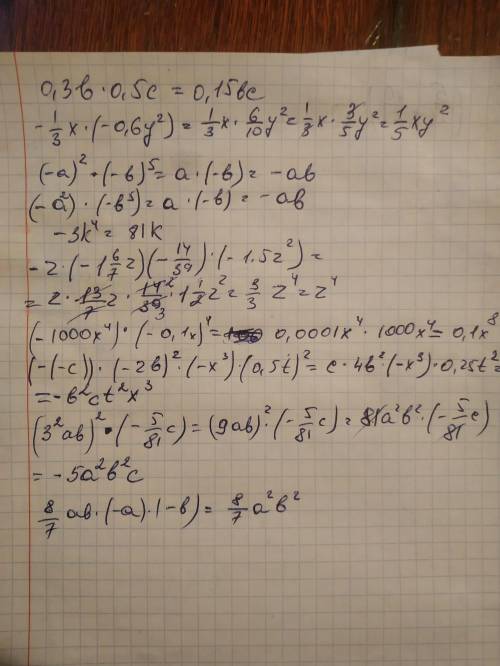 0,3b · 0,5c = 0,15bc
-1/3 x · (-0,6y²) = 1/3 x · 6/10 y² = 1/3 x · 3/5 y² = 1/5 xy²
(-a)² · (-b)⁵ = a · (-b) = -ab
(-a²) · (-b⁵) = a · (-b) = -ab
-3k⁴ = 81k
-2 · (-1 6/7 z)(-14/39) · (-1.5z²) =
= 2 · 13/7 z · 14 2/39 3 · 1 1/2 z² = 3/3 z⁴ = z⁴
(-1000x⁴) · (-0,1x)⁴ = 0,0001x⁴ · 1000x⁴ = 0,1x⁸
(-(-c)) · (-2b)² · (-x³) · (0,5t)² = c · 4b² (-x³) · 0,25t² =
= -b²ct²x³
(3²ab)² · (-5/81 c) = (9ab)² · (-5/81 c) = 81a²b² · (-5/81 c)
= -5a²b²c
8/7 ab · (-a) · (-b) = 8/7 a²b²